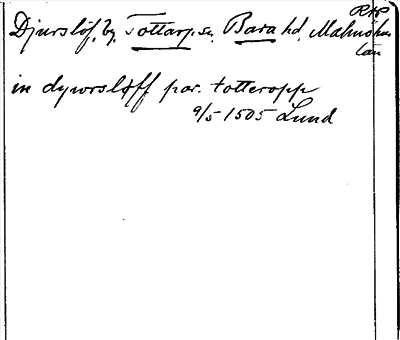 RAP
Djurslöf, by, Tottarp sn, Bara hd, Malmöhus
län
in dyworsløff par. totteropp
9/5 1505 Lund